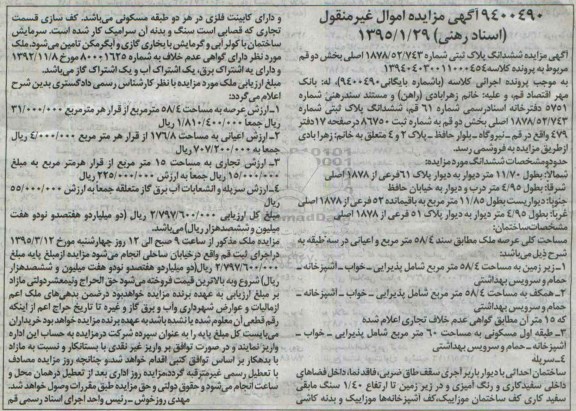 ۹۴۰۰۴۹۰ آگهی مزایده اموال غیرمنقول
(اسناد رهنی) ۱۳۹۵/۱/۲۹
آگهی مزایده ششدانگ پلاک ثبتی شماره ۱۸۷۸/۵۲/۷۴۳ اصلی بخش دو قم
مربوط به پرونده کلاسه
به موجب پرونده اجرائی کلاسه (باشماره بایگانی ۹۴۰۰۴۹۰)، له: بانک
مهر اقتصاد قم، و علیه: خانم زهرابادی (راهن) و مستند سندرهنی شماره
۵۷۵۱ دفترخانه اسنادرسمی شماره ۶۱ قم، ششدانگ پلاک ثبتی شماره
۱۸۷۸/۵۲/۷۴۳ اصلی بخش دو قم به شماره ثبت ۸۶۷۵۰ درصفحه ۱۷ دفتر
۴۷۹ واقع در قم ـ نیروگاه ـ بلوار حافظ ـ پلاک ۲ و ۴ متعلق به خانم: زهرا بادی
ازطریق مزایده به فروش می رسد.
حدودومشخصات ششدانگ مورد مزایده:
شمالا: بطول ۱۱/۷۰ متر دیوار به دیوار پلاک ۶۱ فرعی از ۱۸۷۸ اصلی
شرقا: بطول ۴/۹۵ متر درب و دیوار به خیابان حافظ
جنوبا: دیواریست بطول ۱۱/۸۵ متر به باقیمانده ۵۲ فرعی از ۱۸۷۸ اصلی
غربا: بطول ۴/۹۵ متر دیوار به دیوار پلاک ۵۱ فرعی از ۱۸۷۸ اصلی
مشخصات ساختمان:
مساحت کلی عرصه ملک مطابق سند ۵۸/۴ متر مربع و اعیانی در سه طبقه به
شرح ذیل می باشد:
۱ـ زیر زمین به مساحت ۵۸/۴ متر مربع شامل پذیرایی ـ خواب ـ آشپزخانه ـ
حمام و سرویس بهداشتی
۲ـ همکف به مساحت ۵۸/۴ متر مربع شامل پذیرایی ـ خواب ـ آشپزخانه ـ
حمام و سرویس بهداشتی
که ۱۵ متر آن مطابق گواهی عدم خلاف تجاری اعلام شده
۳ـ طبقه اول مسکونی به مساحت ۶۰ متر مربع شامل پذیرایی ـ خواب ـ
آشپزخانه ـ حمام و سرویس بهداشتی
۴ـ سرپله
ساختمان احداثی با دیوار باربر آجری سقف طاق ضربی، فاقد نما، داخل فضاهای
داخلی سفیدکاری و رنگ آمیزی و در زیر زمین تا ارتفاع ۱/۴۰ سنگ مابقی
سفید کاری کف ساختمان موزاییک، کف آشپزخانه ها موزاییک و بدنه کاشی
و دارای کابینت فلزی در هر دو طبقه مسکونی می باشد. کف سازی قسمت
تجاری که قصابی است سنگ و بدنه آن سرامیک کار شده است. سرمایش
ساختمان با کولر آبی و گرمایش با بخاری گازی و آبگرمکن تامین می شود. ملک
مورد نظر دارای گواهی عدم خلاف به شماره ۸۰۰۰۱۶۲۵ مورخ ۱۳۹۲/۱۱/۸
و دارای یه اشتراک برق، یک اشتراک آب و یک اشتراک گاز می باشد.
مبلغ ارزیابی ملک مورد مزایده با نظر کارشناس رسمی دادگستری بدین شرح
اعلام می گردد:
۱ـ ارزش عرصه به مساحت ۵۸/۴ متر مربع از قرار هر مترمربع ۳۱/۰۰۰/۰۰۰
ریال جمعا ۱/۸۱۰/۴۰۰/۰۰۰ ریال
۲ـ ارزش اعیانی به مساحت ۱۷۶/۸ متر مربع از قرار هر متر مربع ۴/۰۰۰/۰۰۰
ریال جمعا به ارزش ۷۰۷/۲۰۰/۰۰۰ ریال
۳ـ ارزش تجاری به مساحت ۱۵ متر مربع از قرار هرمتر مربع به مبلغ
۱۵/۰۰۰/۰۰۰ ریال جمعا به ارزش ۲۲۵/۰۰۰/۰۰۰ ریال
۴ـ ارزش سرپله و انشعابات آب برق گاز متعلقه جمعا به ارزش ۵۵/۰۰۰/۰۰۰
ریال
مبلغ کل ارزیابی ۲/۷۹۷/۶۰۰/۰۰۰ ریال (دو میلیاردو هفتصدو نودو هفت
میلیون و ششصدهزار ریال) می باشد.
مزایده ملک مذکور از ساعت ۹ صبح الی ۱۲ روز چهارشنبه مورخ ۱۳۹۵/۳/۱۲
دراجرای ثبت قم واقع درخیابان ساحلی انجام می شود مزایده از مبلغ پایه مبلغ
۲/۷۹۷/۶۰۰/۰۰۰ ریال (دو میلیاردو هفتصدو نودو هفت میلیون و ششصدهزار
ریال) شروع و به بالاترین قیمت فروخته می شود حق الحراج و نیم عشر دولتی مازاد
بر مبلغ ارزیابی به عهده برنده مزایده خواهد بود درضمن بدهی های ملک اعم
ازمالیات و عوارض شهرداری و آب و برق گاز و غیره تا تاریخ حراج اعم از اینکه
رقم قطعی آن معلوم شده یا نشده باشد به عهده برنده مزایده خواهد بود خریداران
می بایست کل مبلغ پایه را به عنوان سپرده شرکت درمزایده به حساب این اداره
واریز نمایند و در صورت توافق بر واریز غیر نقدی با بستانکار و نسبت به مازاد
با بدهکار بر اساس توافق کتبی اقدام خواهد شد و چنانچه روز مزایده مصادف
با تعطیل رسمی غیرمترقبه گردد، مزایده روز اداری بعد از تعطیل درهمان محل و
ساعت انجام می شود و حقوق دولتی و حق مزایده طبق مقررات وصول خواهد شد.
مهدی روزخوش ـ رئیس واحد اجرای اسناد رسمی قم